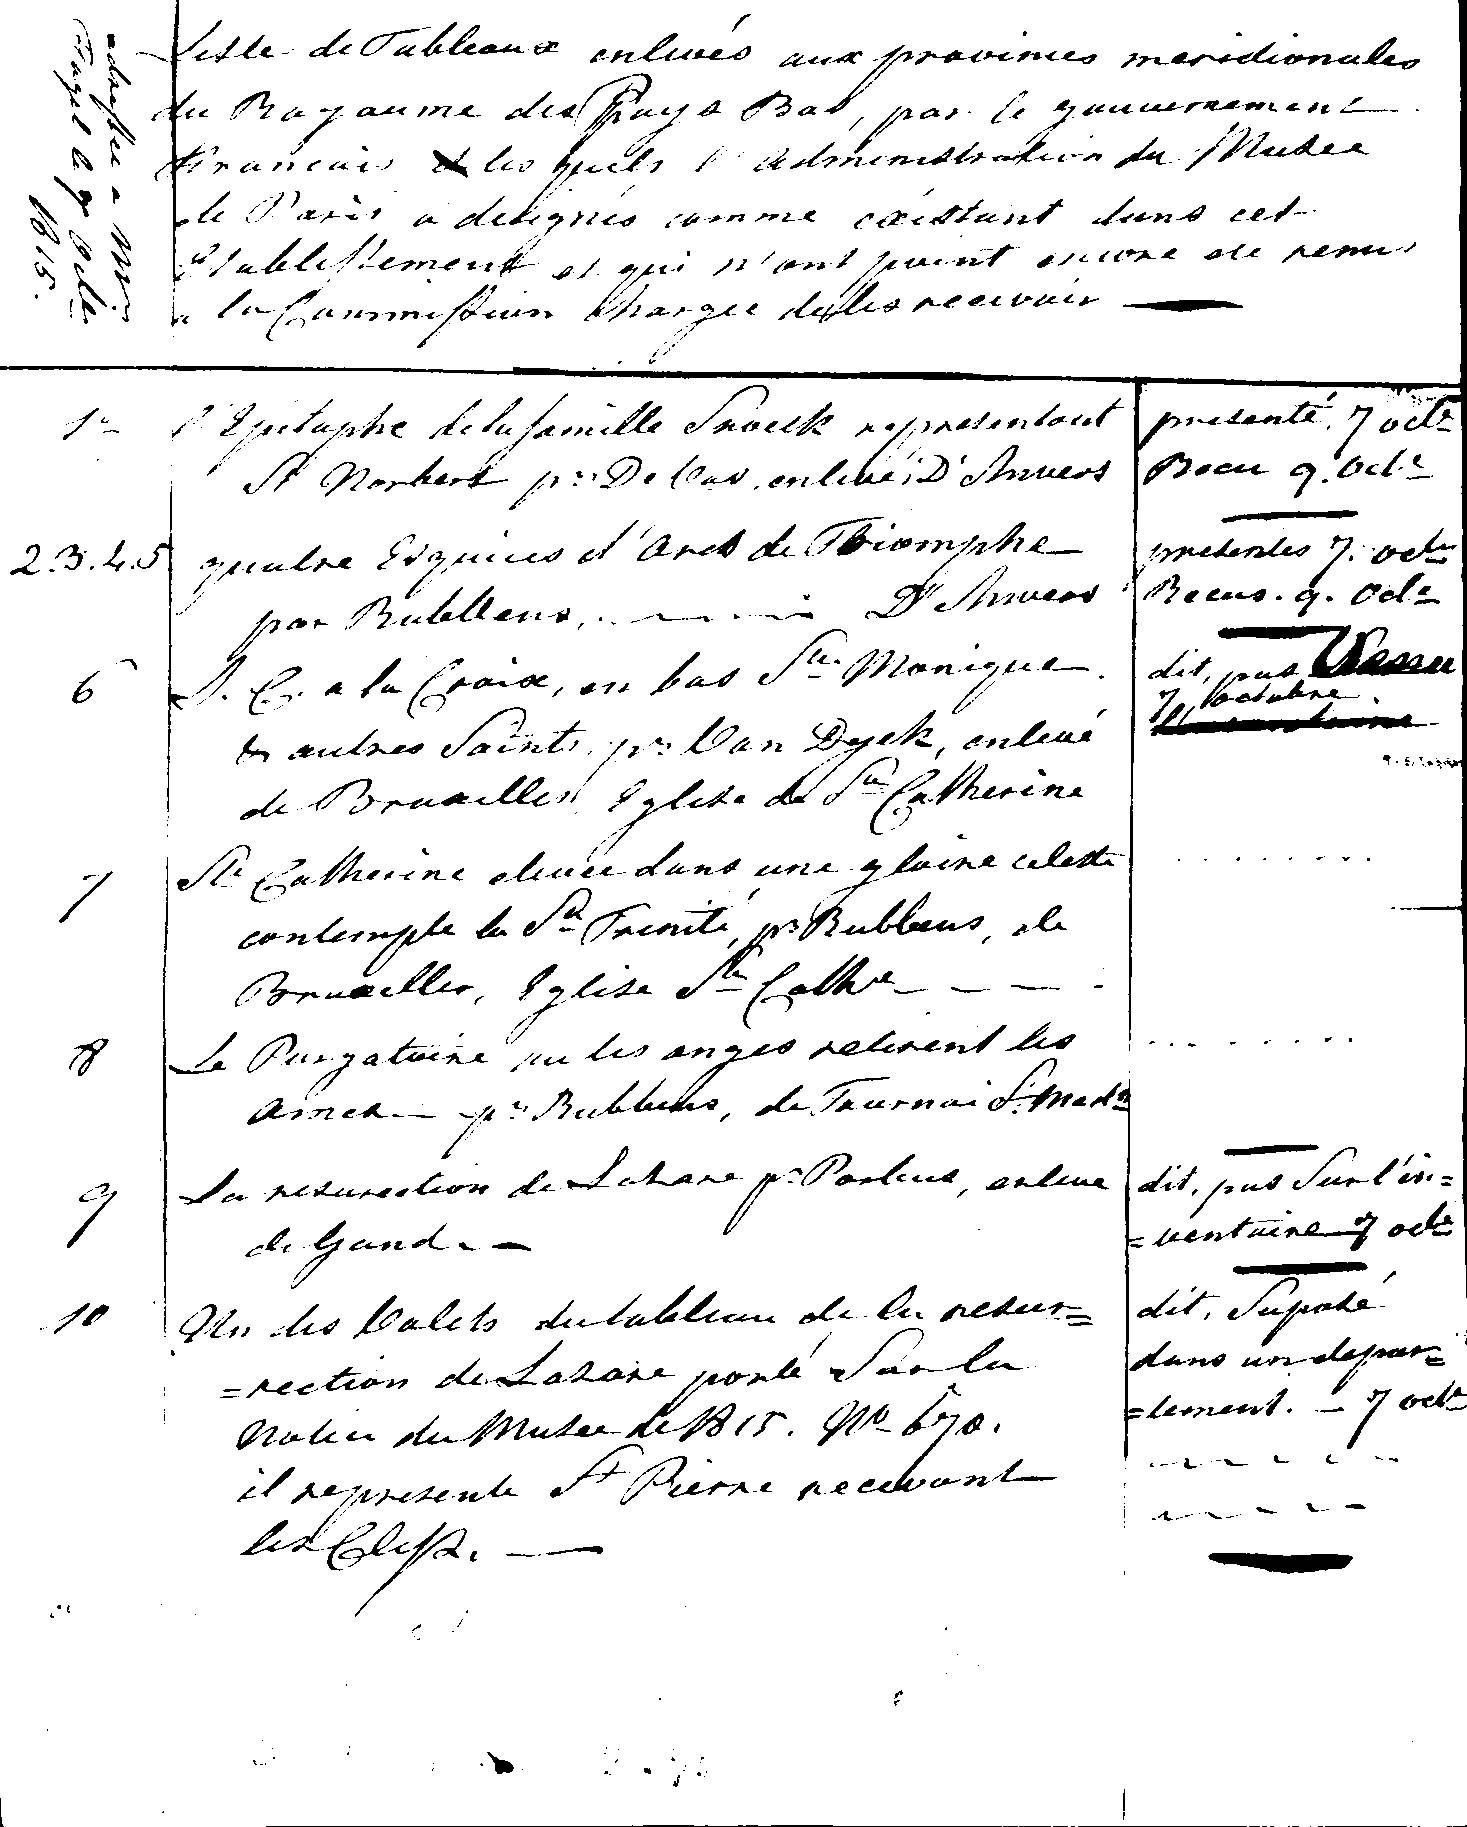 adressée a Mr
Fagel le 9 Octe
1815.
Liste de Tableaux enlevés aux provinces meridionales
du Royaume des Pays Bas, par le gouvernement
Francais les quels l'administration du Musee
de Paris a designés comme existant dans cet
Etablissement et qui n'ont point encore ete remis
a la Commission chargee de les recevoir
1o l'Epitaphe de la famille Snoeck representant presenté 7 octe
St Norbert pr De Vos, enlevé D'Anvers Recu 9. Octe
2.3.4.5 quatre Esquices d'Arcs de Triomphe presentes 7. octe
par Rubbens, D'Anvers Recus. 9. Octe
6 J. C. a la Croix, en bas Ste Monique dit, pas
7 octobre.
& autres Saints, pr Van Dyck, enlevé
de Bruxelles, Eglise de Ste Catherine
7 Ste Catherine elevee dans une gloire celeste
contemple la Ste Trinité, pr Rubbens, de
Bruxelles, Eglise Ste Cathe
8 Le Purgatoire ou les anges retirent les
ames pr Rubbens, de Tournai
9 La resurection de Lazare pr Porbus, enleve dit, pas Sur l'in=
de Gand. =ventaire 7 octe
10 Un des Volets du tableau de la resur= dit, Suposé
=rection de Lazare porté Sur la dans un depar=
Notice du Musee de 1815. No 670. =tement. - 7 octe
il represente St Pierre recevant
les Clefs.